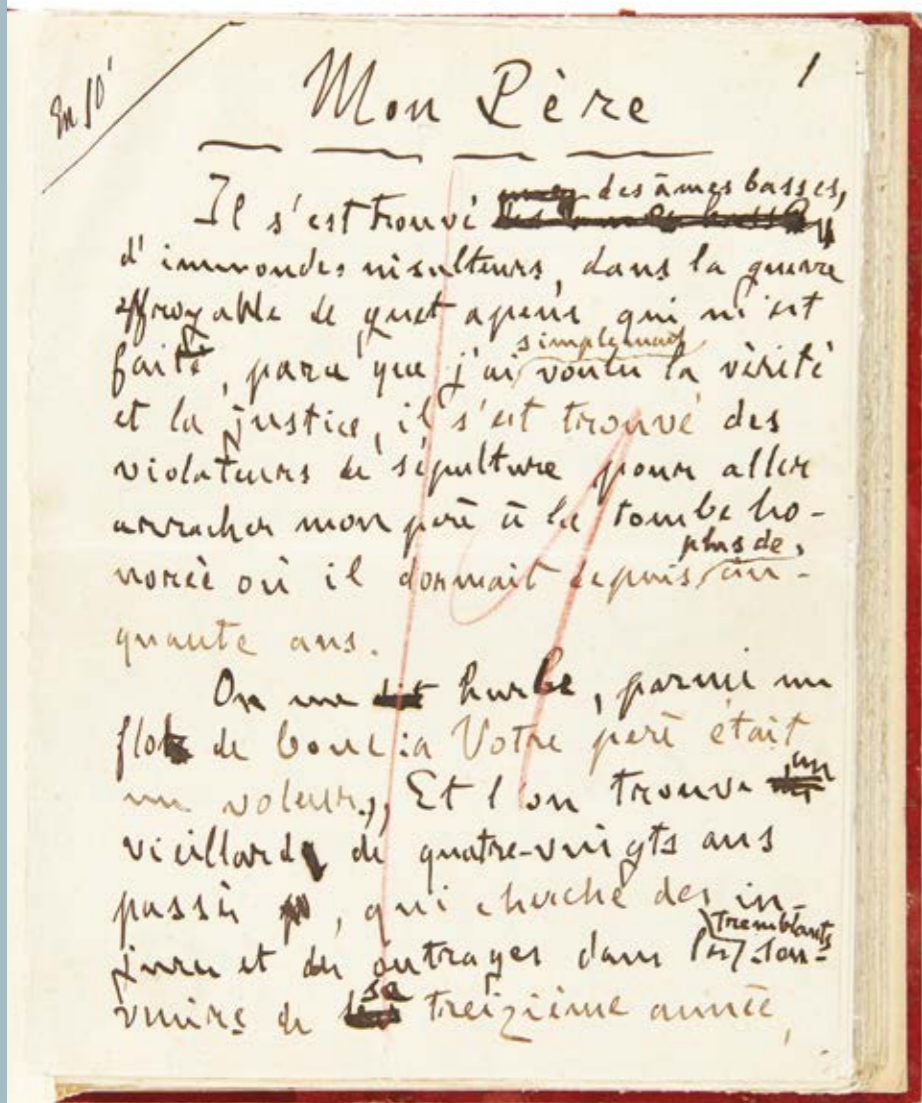 En 10'
1
Mon Père
Il s'est trouvé des âmes basses,
d'immondes insulteurs, dans la guerre
effroyable de guet apens qui m'est
faite, parce que j'ai simplement voulu la vérité
et la justice, il s'est trouvé des
violateurs de sépulture pour aller
arracher mon père à la tombe ho-
norée où il dormait depuis plus de cin-
quante ans.
On me hurle, parmi un
flot de boue : « Votre père était
un voleur. » Et l'on trouve un
vieillard de quatre-vingts ans
passés, qui cherche des in-
jures et des outrages dans les tremblants sou-
venirs de sa treizième année,